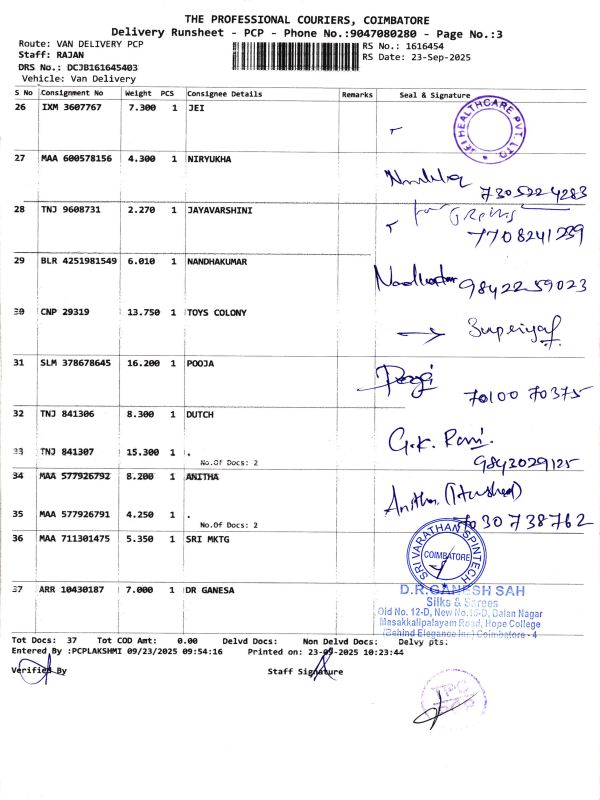 THE PROFESSIONAL COURIERS, COIMBATORE
Delivery Runsheet - PCP - Phone No.:9047080280 - Page No.:3
Route: VAN DELIVERY PCP RS No.: 1616454
Staff: RAJAN RS Date: 23-Sep-2025
DRS No.: DCJB161645403
Vehicle: Van Delivery
S No Consignment No Weight PCS Consignee Details Remarks Seal & Signature
26 IXM 3607767 7.300 1 JEI
JEI HEALTHCARE PVT. LTD
27 MAA 600578156 4.300 1 NIRYUKHA
7305224283
28 TNJ 9608731 2.270 1 JAYAVARSHINI
for
7708241239
29 BLR 4251981549 6.010 1 NANDHAKUMAR
98422 59023
30 CNP 29319 13.750 1 TOYS COLONY
31 SLM 378678645 16.200 1 POOJA
70100 70375
32 TNJ 841306 8.300 1 DUTCH
G.K. Rani.
33 TNJ 841307 15.300 1 .
No.Of Docs: 2
9843029125
34 MAA 577926792 8.200 1 ANITHA
Anitha. (Husband)
35 MAA 577926791 4.250 1 .
No.Of Docs: 2
7030738762
36 MAA 711301475 5.350 1 SRI MKTG
SRI VARATHAN SPINTECH
COIMBATORE
37 ARR 10430187 7.000 1 DR GANESA
D.R.GANESH SAH
Silks & Sarees
Old No. 12-D, New No.16-D, Dalan Nagar
Masakkalipalayam Road, Hope College
(Behind Elegance Inc) Coimbatore - 4
Tot Docs: 37 Tot COD Amt: 0.00 Delvd Docs: Non Delvd Docs: Delvy pts:
Entered By :PCPLAKSHMI 09/23/2025 09:54:16 Printed on: 23-09-2025 10:23:44
Verified By Staff Signature
TPC